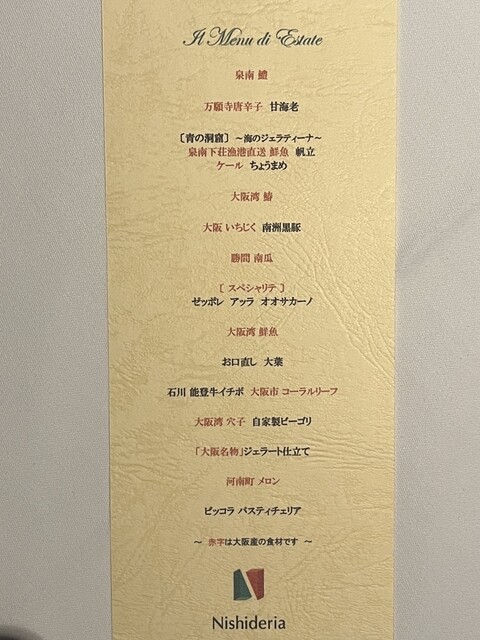 Il Menu di Estate
泉南 鱧
万願寺唐辛子 甘海老
〔青の洞窟〕 ~海のジェラティーナ~
泉南下荘漁港直送 鮮魚 帆立
ケール ちょうまめ
大阪湾 鰆
大阪 いちじく 南洲黒豚
勝間 南瓜
〔 スペシャリテ 〕
ゼッポレ アッラ オオサカーノ
大阪湾 鮮魚
お口直し 大葉
石川 能登牛イチボ 大阪市 コーラルリーフ
大阪湾 穴子 自家製ビーゴリ
「大阪名物」ジェラート仕立て
河南町 メロン
ピッコラ パスティチェリア
~ 赤字は大阪産の食材です ~
Nishideria